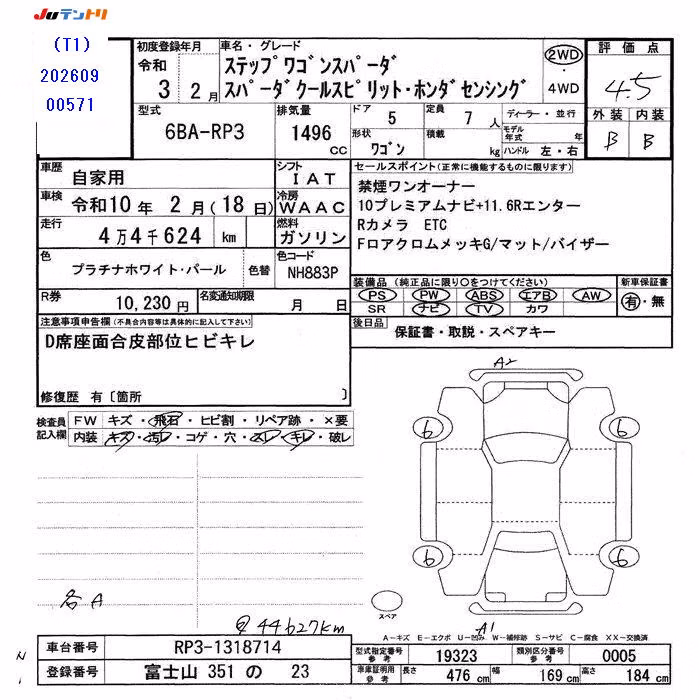 Juテントリ
(T1)
202609
00571
初度登録年月
令和
3 2月
車名・グレード
ステップワゴンスパーダ
スパーダクールスピリット・ホンダセンシング
2WD
・
4WD
評価点
4.5
外装 内装
B B
型式
6BA-RP3
排気量
1496
CC
ドア 5
形状
ワゴン
定員 7 人
積載 kg
ディーラー・並行
モデル年式 年
ハンドル 左・右
車歴 自家用
シフト IAT
車検 令和10年 2月(18日)
冷房 WAAC
走行 4万4千624 km
燃料 ガソリン
色 プラチナホワイト・パール 色替
色コード NH883P
R券 10,230円
名変通知期限 月 日
セールスポイント(正常に機能するものに限ります)
禁煙ワンオーナー
10プレミアムナビ+11.6Rエンター
Rカメラ ETC
Fロアクロムメッキ G/マット/バイザー
装備品 (純正品に限り○をつけてください)
PS PW ABS エアB AW
SR ナビ TV カワ
新車保証書
有・無
後日品 保証書・取説・スペアキー
注意事項申告欄(不具合内容等は具体的に記入して下さい)
D席座面合皮部位ヒビキレ
修復歴 有〔箇所 〕
検査員記入欄
FW キズ・飛石・ヒビ割・リペア跡・×要
内装 キズ・汚レ・コゲ・穴・スレ・キレ・破レ
A2
6 6
6 6
スペア
A1
各A
@44627km
A-キズ E-エクボ U-凹み W-補修跡 S-サビ C-腐食 XX-交換済
車台番号 RP3-1318714
登録番号 富士山 351 の 23
型式指定番号 参考 19323
類別区分番号 参考 0005
車庫証明用 参考 長さ 476 cm 幅 169 cm 高さ 184 cm
N
1